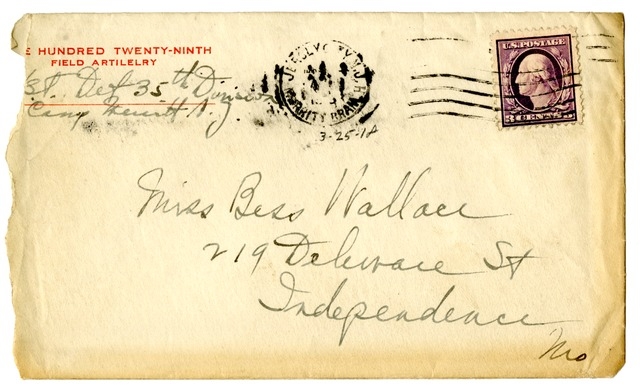 E HUNDRED TWENTY-NINTH
FIELD ARTILELRY
Det 35th Division
Camp Merritt N.J.
JERSEY CITY N.J.
MERRITT BRANCH
U.S. POSTAGE
3 CENTS 3
3-25-18
Miss Bess Wallace
219 Delaware St
Independence
Mo